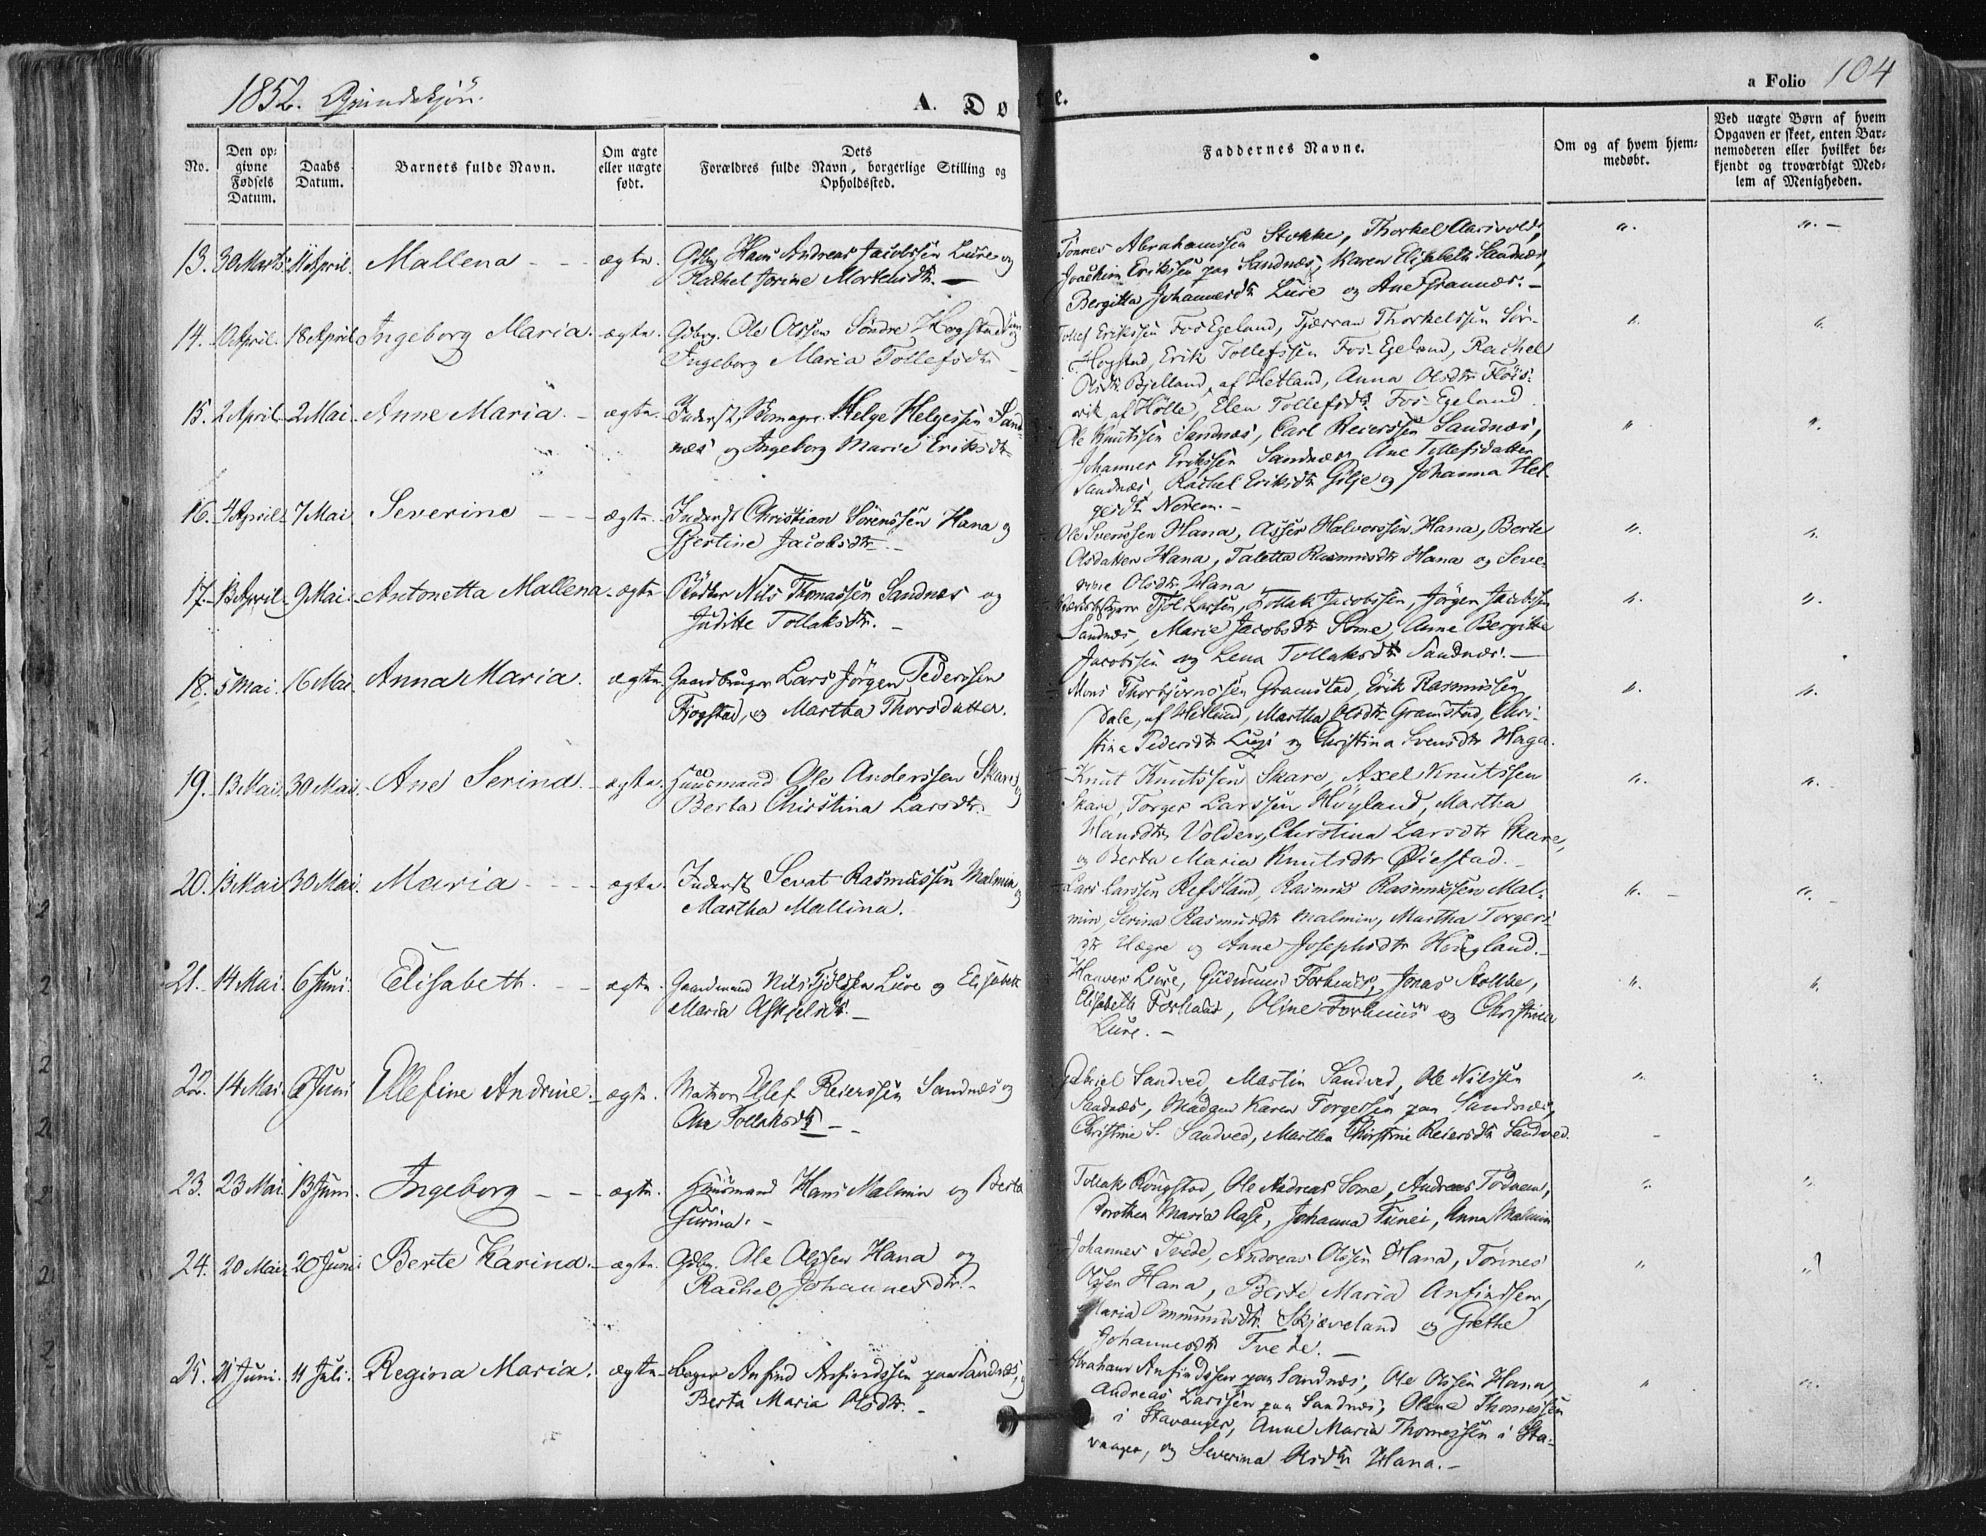 1852. Qvindekjön.
A. Døbte.
a Folio 104
No.
Den op-
givne
Fødsels
Datum.
Daabs
Datum.
Barnets fulde Navn.
Om ægte
eller uægte
født.
Dets
Forældres fulde Navn, borgerlige Stilling og
Opholdssted.
Faddernes Navne.
Om og af hvem hjem-
medøbt.
Ved uægte Børn af hvem
Opgaven er skeet, enten Bar-
nemoderen eller hvilket be-
kjendt og troværdigt Med-
lem af Menigheden.
13. 30 Marts 11 April. Mallena - - - ægte. Gdbg. Hans Andreas Jacobssen Lure og
Rachel Jorine Mortensdtr. -
Tonnes Abrahamssen Stokke, Thorkel Aarsvold,
Joachim Erikssen paa Sandnæs, Karen Elisabeth Sandnæs,
Bergitta Johannesdtr Lure og Ane Grannæs. -
14. 10 April. 18 April Ingeborg Maria. ægte. Gdbrg. Ole Olsson Söndre Hogstad og
Ingeborg Maria Tollefsdtr
Tollef Erikssen Fos-Egeland, Tjærran Thorkelssen Sör-
Hogstad, Erik Tollefssen Fos-Egeland, Rachel
Olsdtr Bjelland, af Hetland, Anna Olsdtr Flöis-
vik af Hölle, Elen Tollefsdtr Fos-Egeland.
15. 2 April. 2 Mai. Anne Maria. - ægte. Inderst, Skomager Helge Helgessen Sand-
næs og Ingeborg Marie Eriksdtr
Ole Knutssen Sandnæs, Carl Reierssen Sandnæs,
Johannes Erikssen Sandnæs, Ane Tollefsdatter
Sandnæs, Rachel Eriksdtr Gilje og Johanna Hel-
gesdtr Norem. -
16. 4 April. 7 Mai Severine - - - ægte. Inderst Christian Sörenssen Hana og
Gjertine Jacobsdtr. -
Ole Svenssen Hana, Asser Halvorssen Hana, Berte
Olsdatter Hana, Taletta Rasmusdtr Hana og Seve-
rine Olsdtr Hana
17. 13 April. 9 Mai. Antonetta Mallena. ægte Bödker Nils Thomassen Sandnæs og
Juditte Tollaksdtr. -
Tjöl Larsen, Tollak Jacobssen, Jörgen Jacobssen
Sandnæs, Marie Jacobsdtr Some, Anne Bergitte
Jacobssen og Lena Tollaksdtr Sandnæs. -
18. 5 Mai. 16 Mai. Anna Maria. ægte. Gaardbruger Lars Jörgen Pederssen
Fjogstad, og Martha Thorsdatter.
Mons Thorbjörnssen Gramstad, Erik Rasmussen
Dale, af Hetland, Martha Olsdtr Gramstad, Chri-
stina Pedersdtr Lusi og Christina Svensdtr Haga.
19. 13 Mai. 30 Mai. Ane Serina. - ægte. Huusmand Ole Anderssen Skare og
Berta Christina Larsdtr.
Knut Knutssen Skare, Axel Knutssen
Skare, Torger Larssen Höyland, Martha
Hansdtr Volden, Christina Larsdtr Skare,
og Berta Maria Knutsdtr Öiestad. -
20. 13 Mai 30 Mai. Maria - - - ægte. Inderst Sevat Rasmussen Malmin og
Martha Mallina.
Lars Larssen Refsland, Rasmus Rasmussen Mal-
min, Serina Rasmusdtr Malmin, Martha Torgers-
dtr Hægre og Anne Josephsdtr Hougland. -
21. 14 Mai. 6 Juni. Elisabeth. - - ægte. Gaardmand Nils Tjölssen Lure og Elisabeth
Maria Askjelsdtr. -
Lure, Gudmund, Jonas Stokke,
Elisabeth, Oline og Christine
Lure. -
22. 14 Mai. 6 Juni Ellefine Andrine. - ægte. Matros Ellef Reierssen Sandnæs og
Ane Tollaksdtr - -
Gabriel Sandved, Martin Sandved, Ole Nilssen
Sandnæs, Madam Karen Torgersen paa Sandnæs,
Christine S. Sandved, Martha Christine Reiersdtr Sandved.
23. 23 Mai. 13 Juni. Ingeborg - - - ægte. Huusmand Hans Malmin og Berta
Gurina. -
Tollak Rougstad, Ole Andreas Some, Andreas Todnem,
Dorothea Maria Aase, Johanna Tunei, Anna Malmin
24. 20 Mai. 20 Juni. Berte Karina. - ægte. Gdbg. Ole Olssen Hana og
Rachel Johannesdtr. -
Johannes Tvede, Andreas Olssen Hana, Tönnes
Olssen Hana, Berte Maria Anfindsen,
Maria Ommundsdtr. Skjæveland og Grethe
Johannesdtr Tvede. -
25. 21 Juni. 11 Juli. Regina Maria. ægte. Anfind Anfindssen paa Sandnæs, og
Berta Maria Olsdtr. -
Abraham Anfindssen paa Sandnæs, Ole Olssen Hana,
Andreas Larssen paa Sandnæs, Olena Thomessen
i Stavanger, Anne Maria Thomessen i Sta-
vanger, og Severina Olsdtr Hana. -